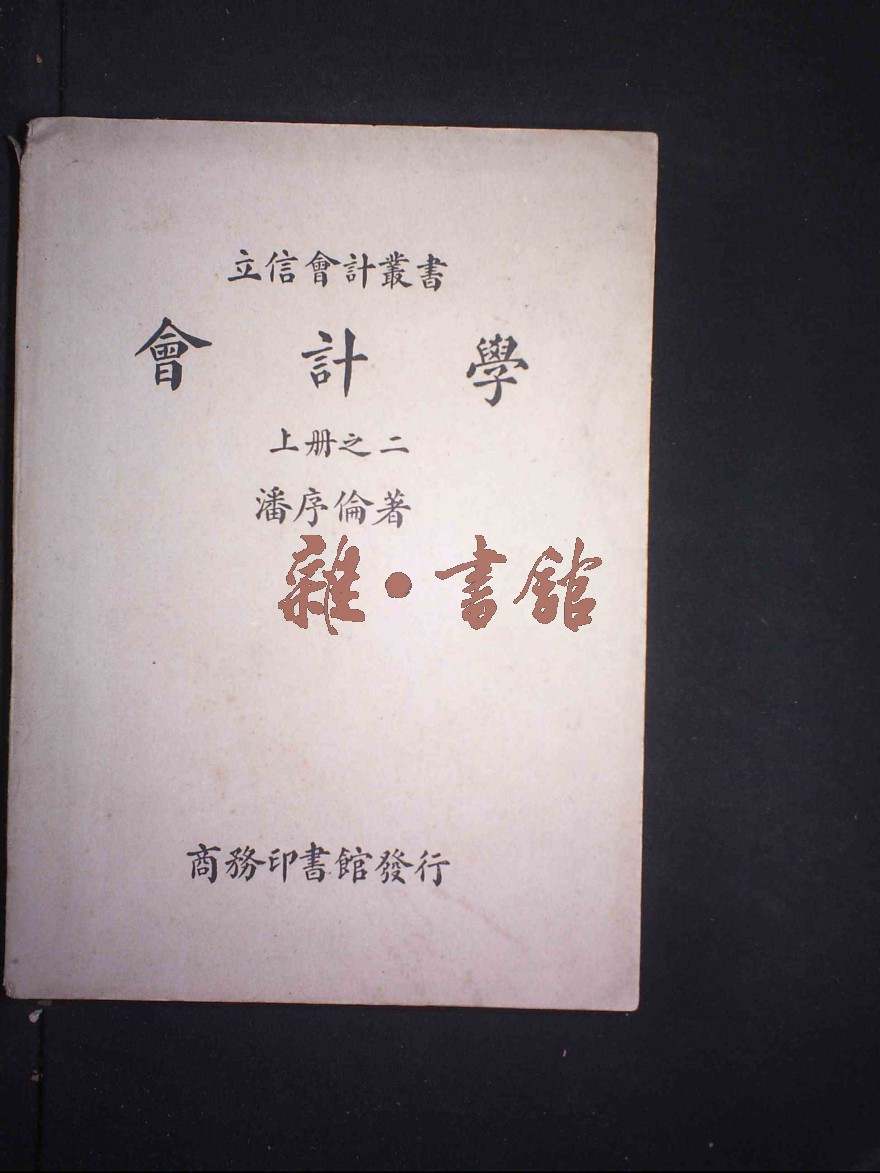 立信會計叢書
會計學
上册之二
潘序倫著
雜·書館
商務印書館發行